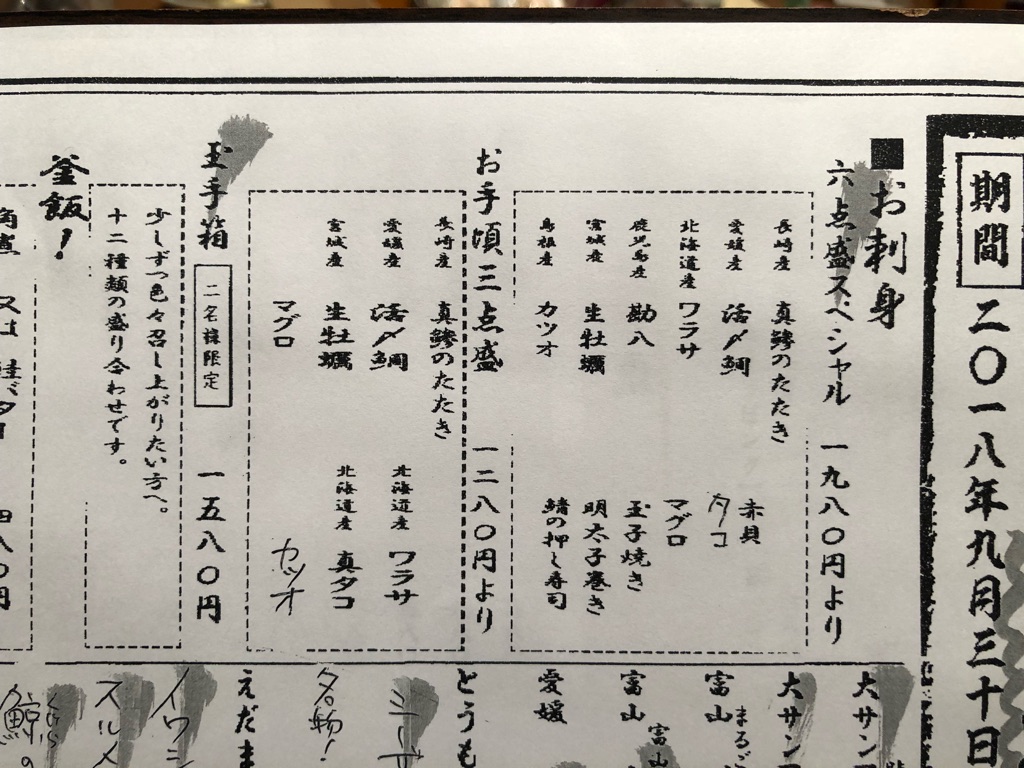 期間
二〇一八年九月三十日
■お刺身
六点盛スペシャル 一九八〇円より
長崎産 真鯵のたたき
愛媛産 活〆鯛
北海道産 ワラサ
鹿児島産 勘八
宮城産 生牡蠣
島根産 カツオ
赤貝
タコ
マグロ
玉子焼き
明太子巻き
鯖の押し寿司
お手頃三点盛 一二八〇円より
長崎産 真鯵のたたき
愛媛産 活〆鯛
宮城産 生牡蠣
マグロ
北海道産 ワラサ
北海道産 真タコ
カツオ
玉手箱 二名様限定 一五八〇円
少しずつ色々召し上がりたい方へ。
十二種類の盛り合わせです。
釜飯!
又は
大サン
大サン
富山 まるご
富山 富山
愛媛
とうも
えだま
イワシ
スルメ